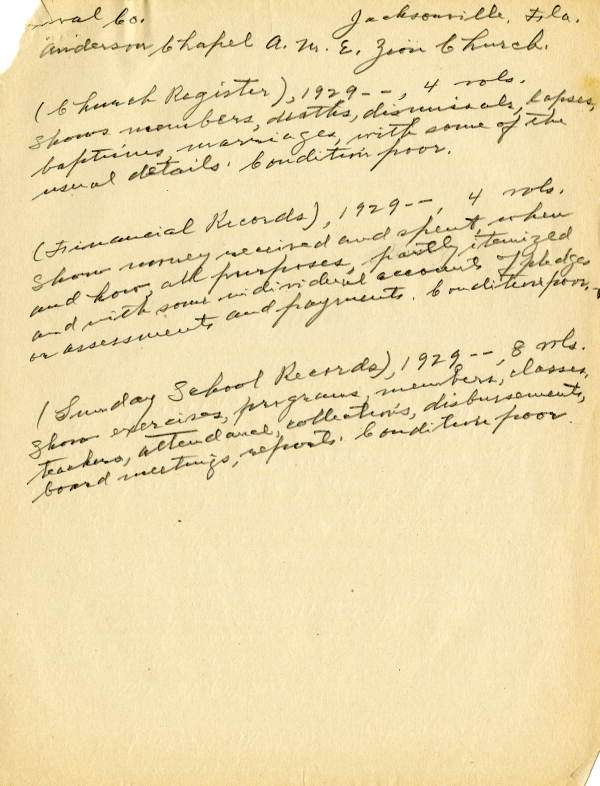 val Co. Jacksonville, Fla.
Anderson Chapel A. M. E. Zion Church.
(Church Register), 1929--, 4 vols.
Shows members, deaths, dismissals, lapses,
baptisms, marriages, with some of the
usual details. Condition poor.
(Financial Records), 1929--, 4 vols.
Show money received and spent, when
and how, all purposes, partly itemized
and with some individual accounts of pledges
or assessments and payments. Condition poor.
(Sunday School Records), 1929--, 8 vols.
Show exercises, programs, members, classes,
teachers, attendance, collections, disbursements,
board meetings, reports. Condition poor.